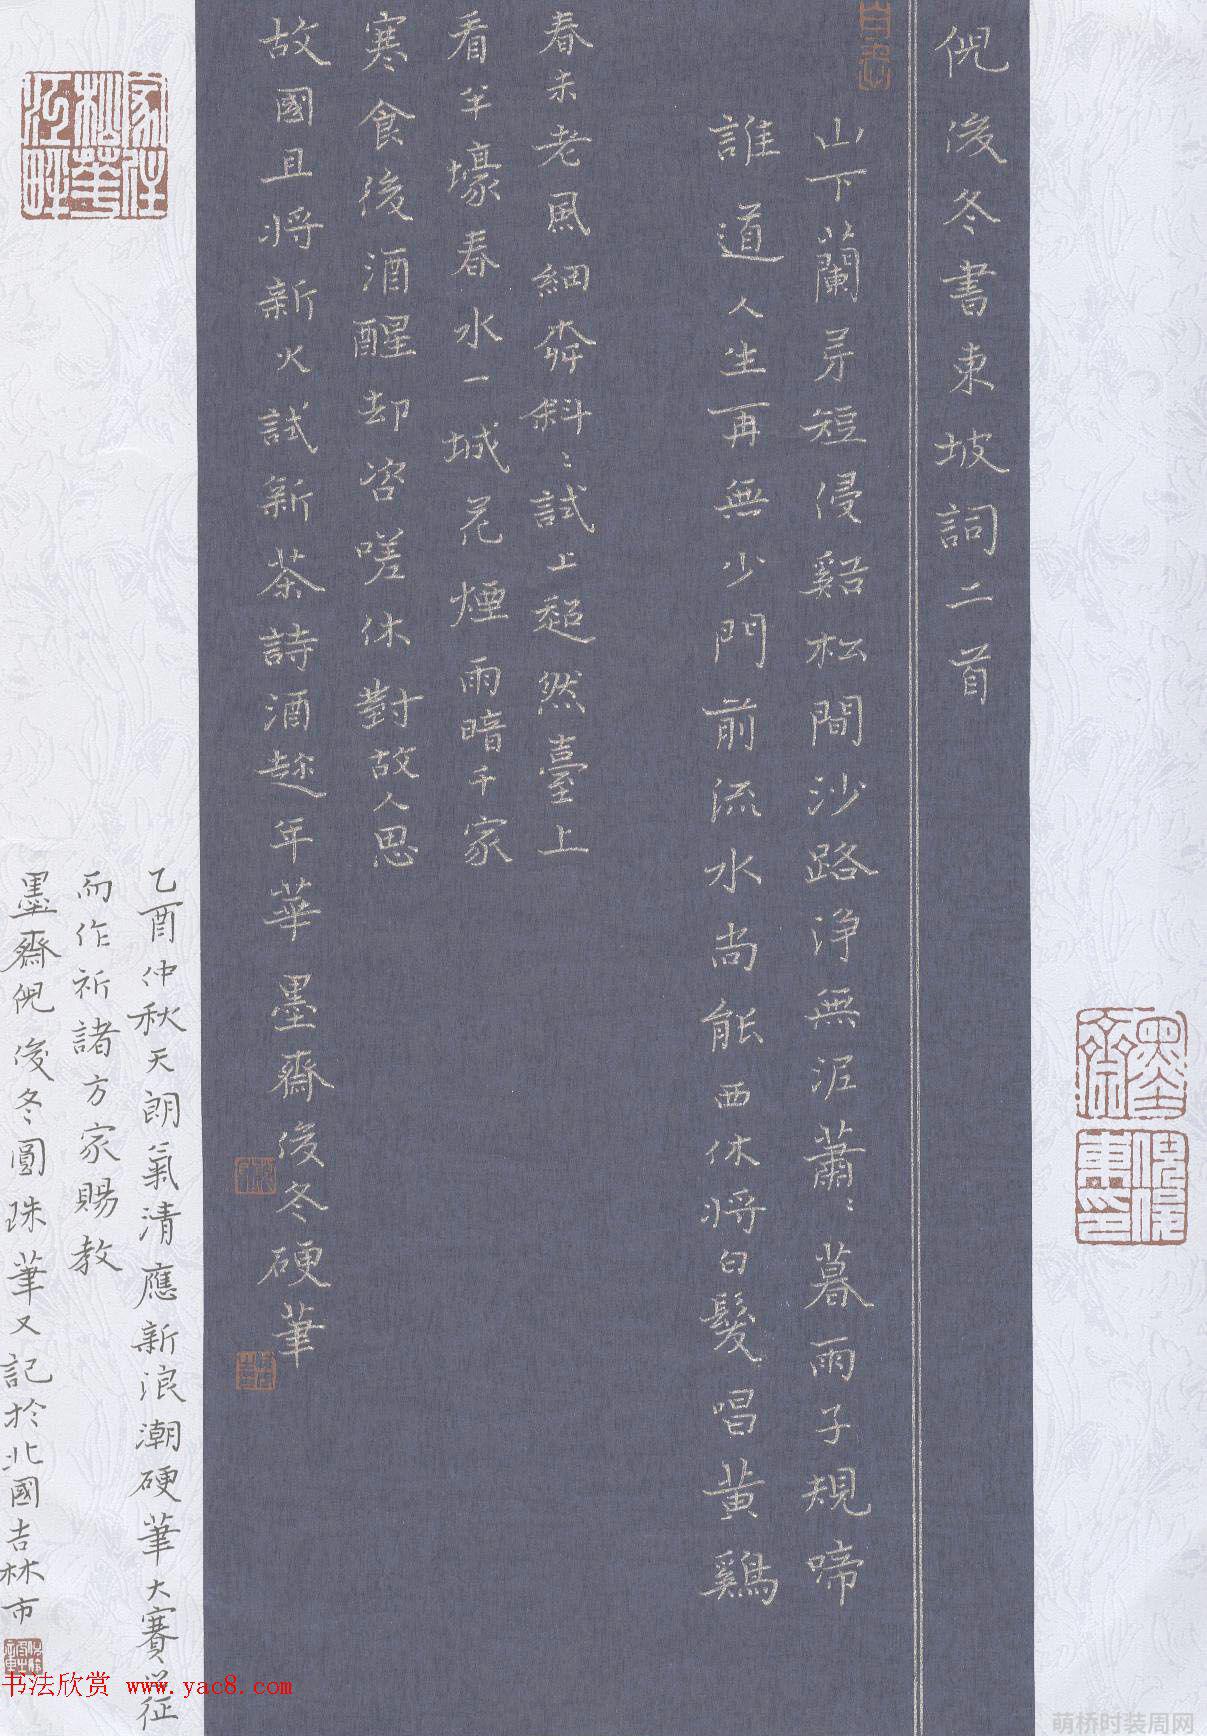 倪俊冬書東坡詞二首
山下蘭芽短侵谿松間沙路淨無泥蕭〻暮雨子規啼
誰道人生再無少門前流水尚能西休將白髮唱黃鷄
春未老風細柳斜〻試上超然臺上
看半壕春水一城花煙雨暗千家
寒食後酒醒却咨嗟休對故人思
故國且將新火試新茶詩酒趁年華 墨齋俊冬硬筆
乙酉仲秋天朗氣清應新浪潮硬筆大賽之征
而作祈諸方家賜教
墨齋倪俊冬圓珠筆又記於北國吉林市
家住松花江畔
墨齋
书法欣赏 www.yac8.com
萌桥时装周网